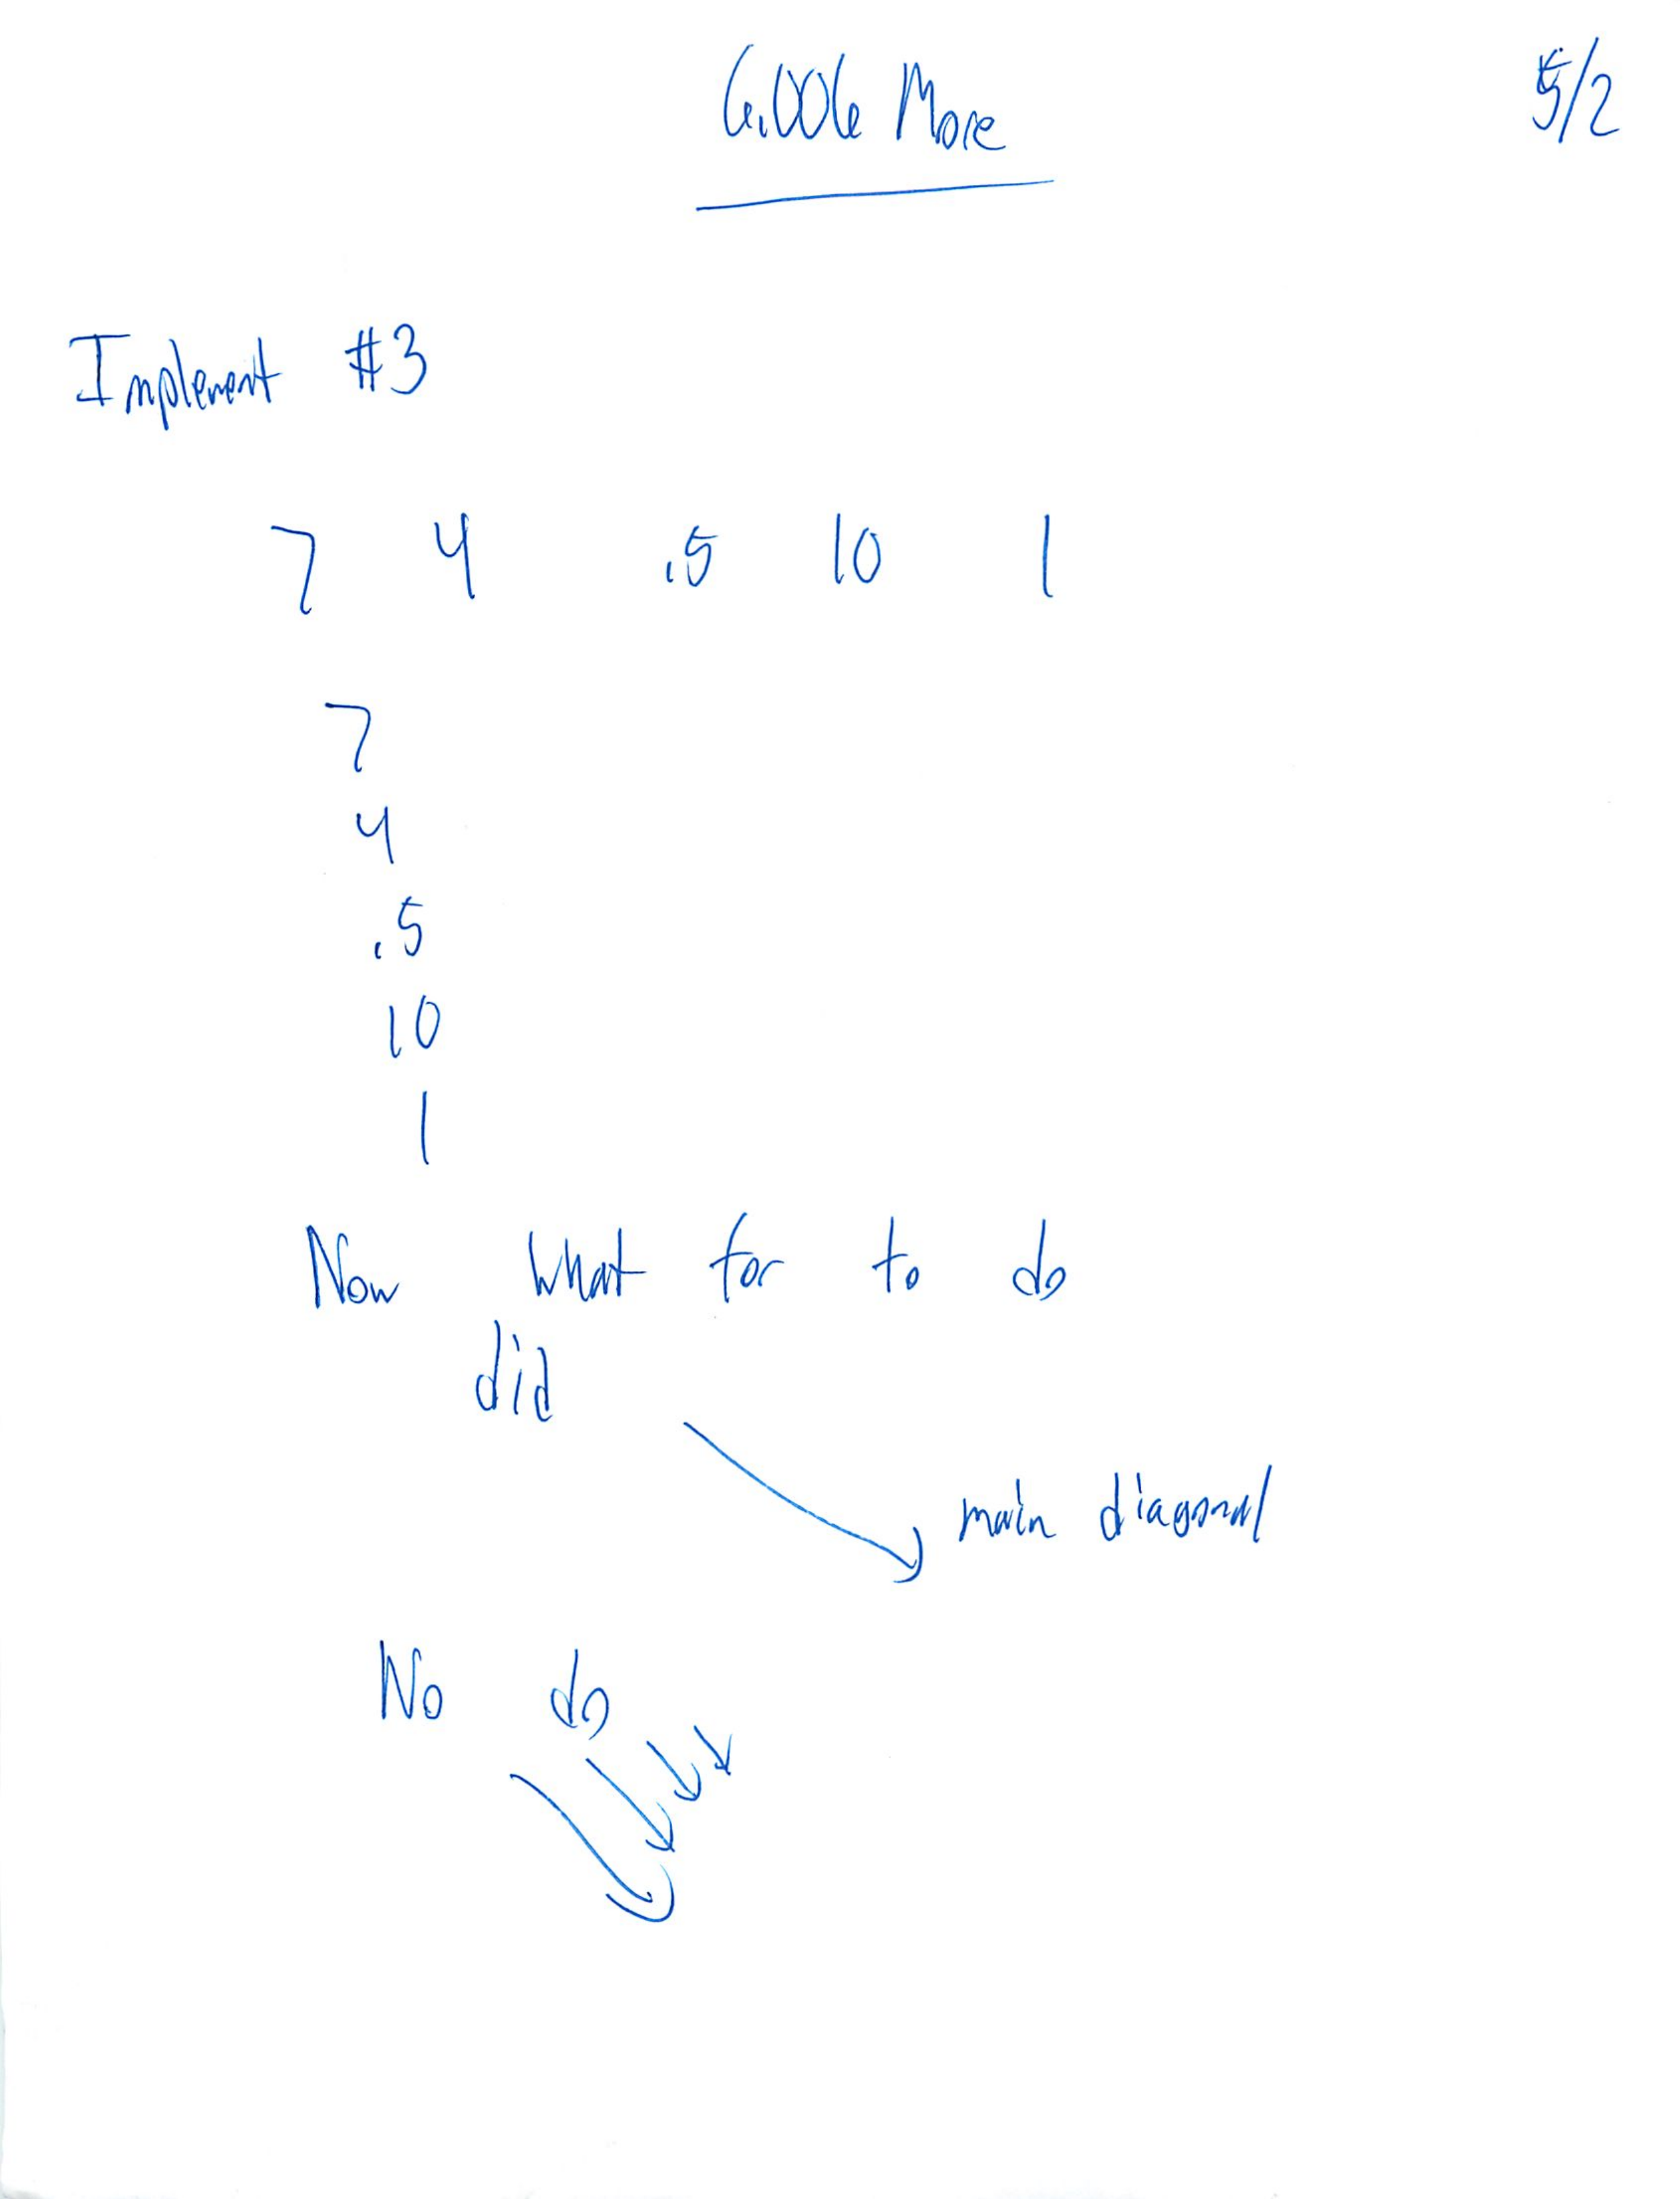 6.006 More 5/2
Implement #3
7 4 .5 10 1
7
4
.5
10
1
Now what for to do
did
main diagonal
No do